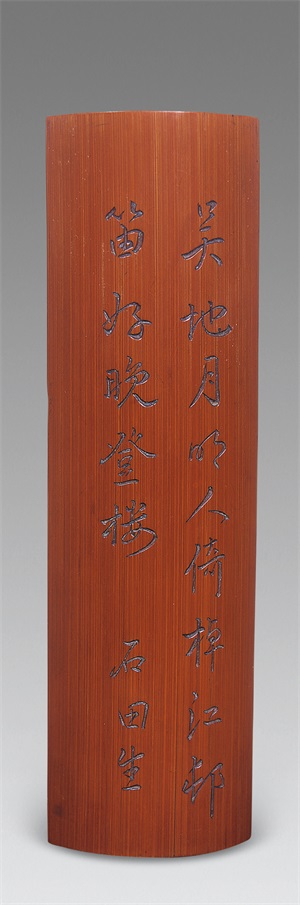 吴地月明人倚棹江邨
笛好晚登楼 石田生